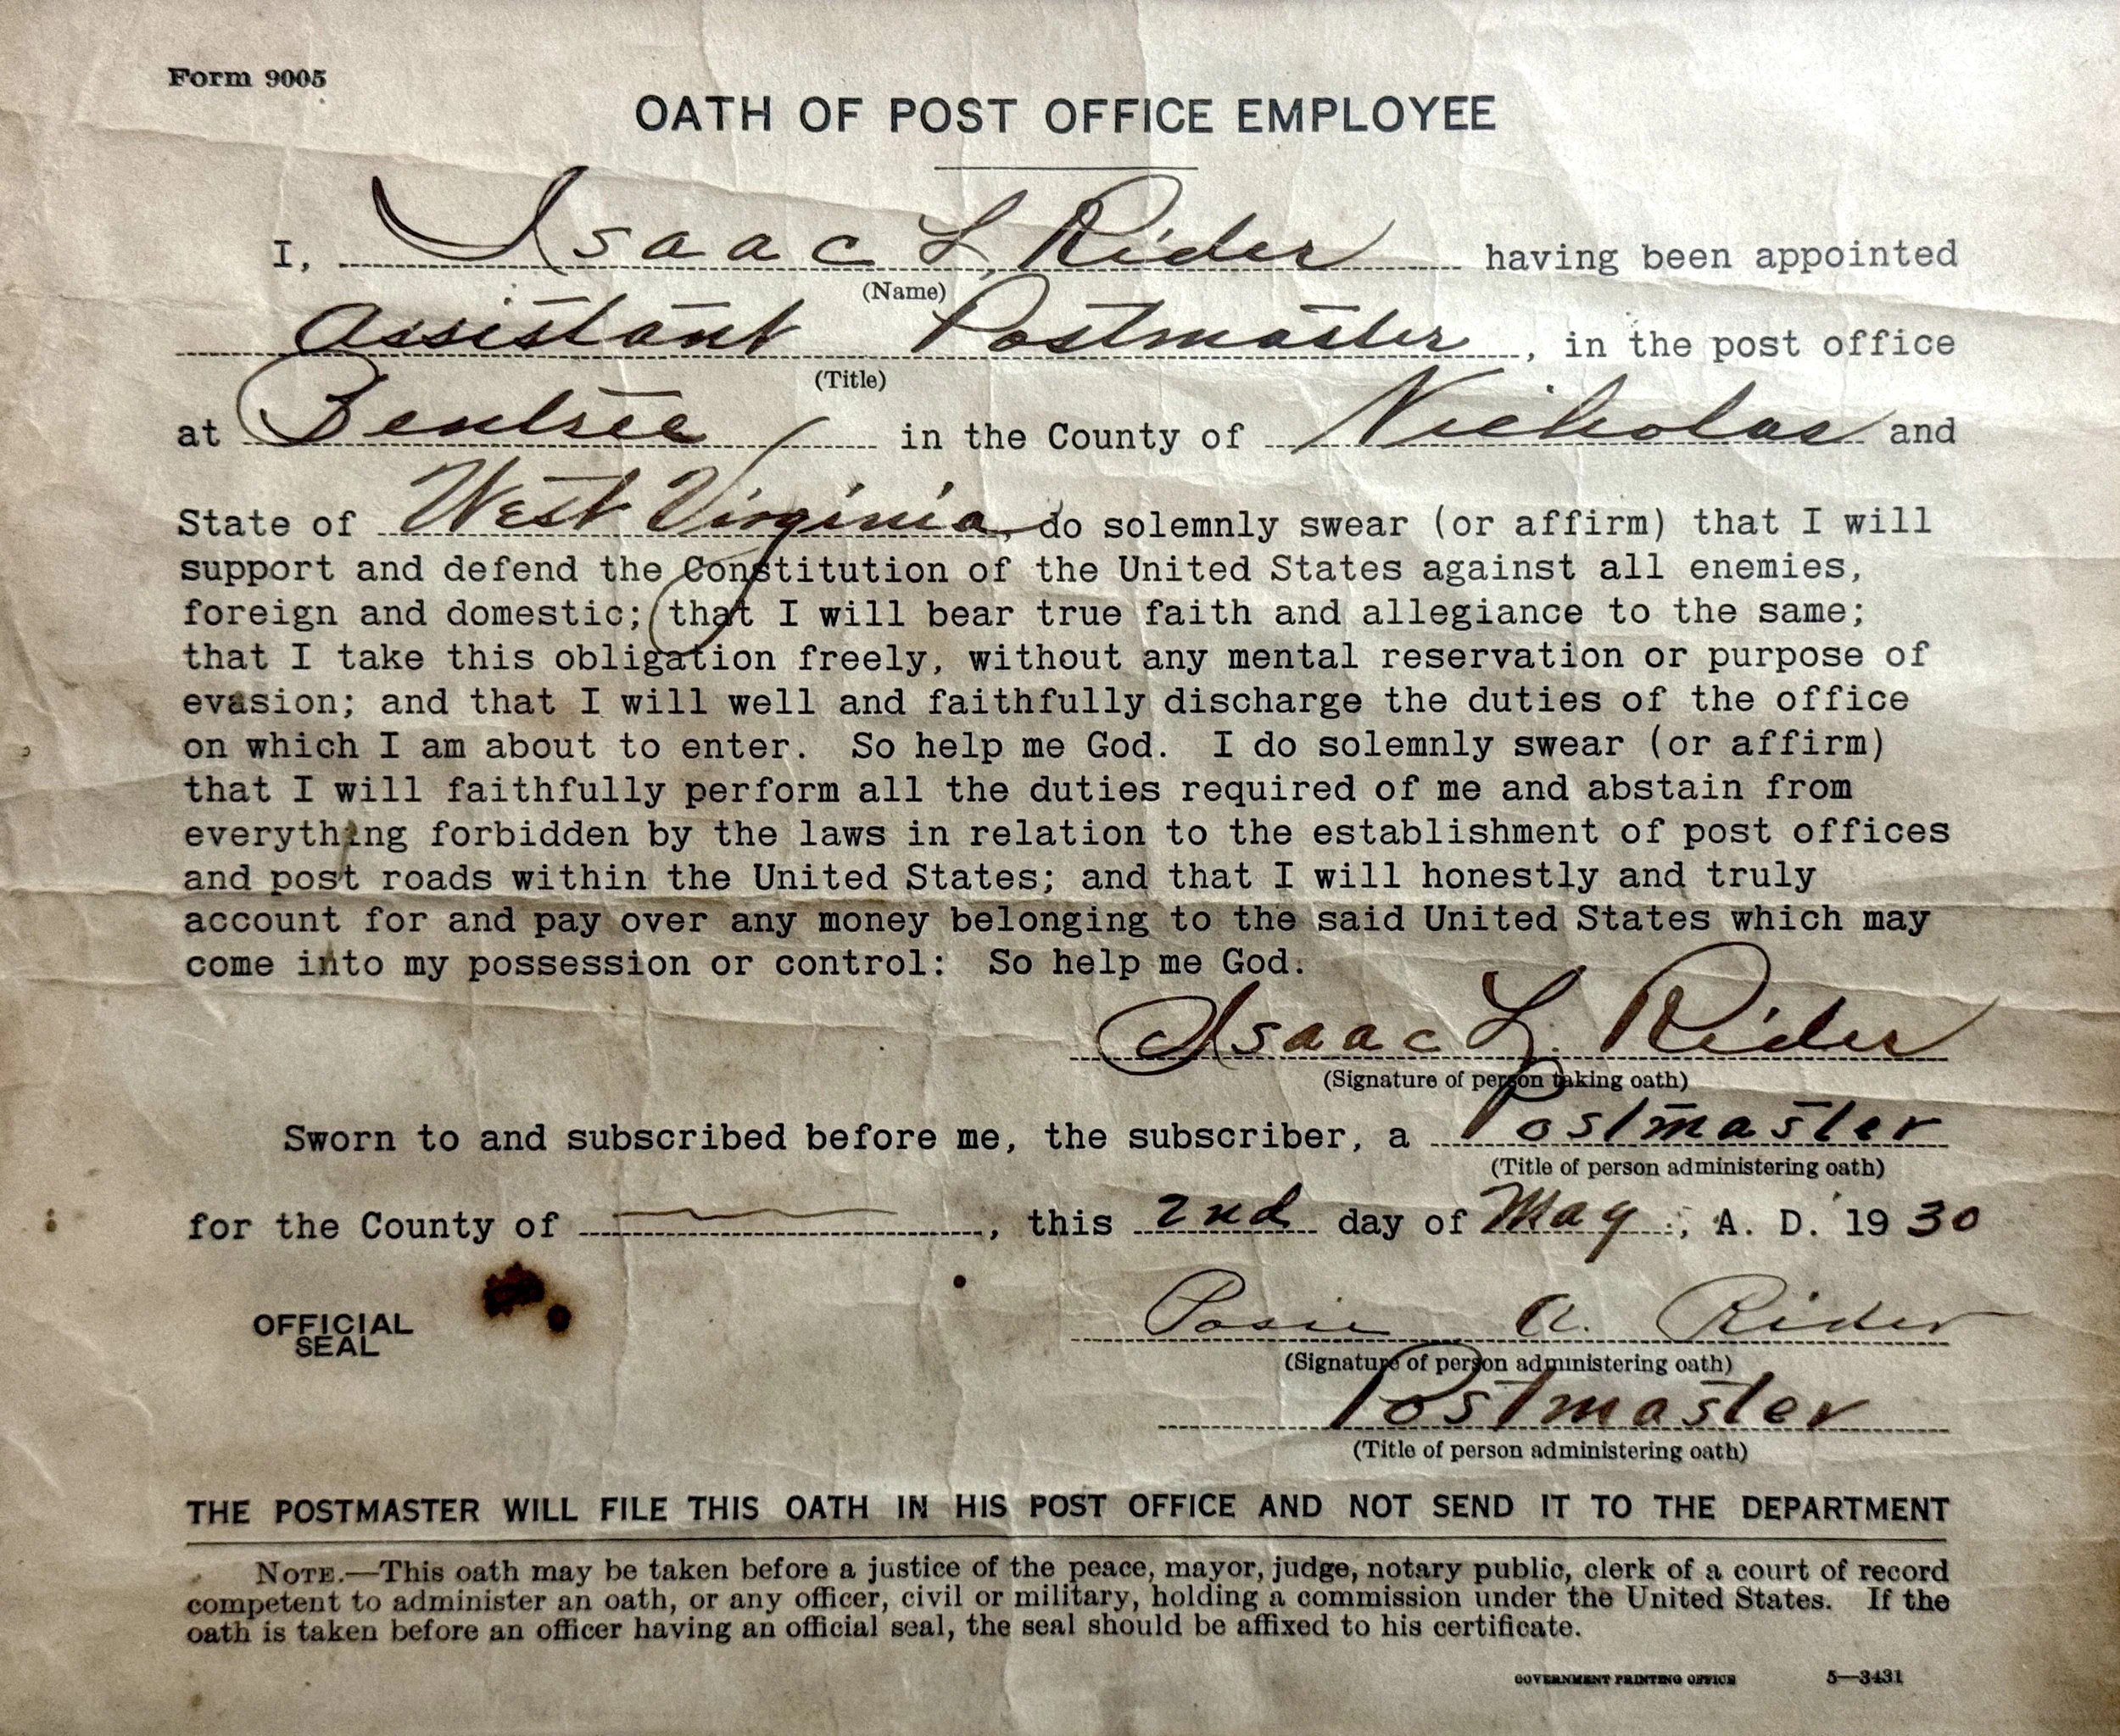 Form 9005
OATH OF POST OFFICE EMPLOYEE
I, Isaac L. Rider having been appointed
(Name)
Assistant Postmaster, in the post office
(Title)
at Bentree in the County of Nicholas and
State of West Virginia, do solemnly swear (or affirm) that I will
support and defend the Constitution of the United States against all enemies,
foreign and domestic; that I will bear true faith and allegiance to the same;
that I take this obligation freely, without any mental reservation or purpose of
evasion; and that I will well and faithfully discharge the duties of the office
on which I am about to enter. So help me God. I do solemnly swear (or affirm)
that I will faithfully perform all the duties required of me and abstain from
everything forbidden by the laws in relation to the establishment of post offices
and post roads within the United States; and that I will honestly and truly
account for and pay over any money belonging to the said United States which may
come into my possession or control: So help me God.
Isaac L. Rider
(Signature of person taking oath)
Sworn to and subscribed before me, the subscriber, a Postmaster
(Title of person administering oath)
for the County of , this 2nd day of May, A. D. 1930
OFFICIAL
SEAL
Posie A. Rider
(Signature of person administering oath)
Postmaster
(Title of person administering oath)
THE POSTMASTER WILL FILE THIS OATH IN HIS POST OFFICE AND NOT SEND IT TO THE DEPARTMENT
NOTE.—This oath may be taken before a justice of the peace, mayor, judge, notary public, clerk of a court of record
competent to administer an oath, or any officer, civil or military, holding a commission under the United States. If the
oath is taken before an officer having an official seal, the seal should be affixed to his certificate.
GOVERNMENT PRINTING OFFICE 5—3431